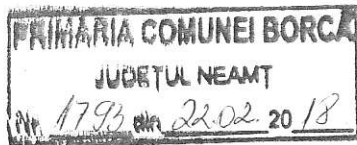 PRIMĂRIA COMUNEI BORCA
JUDEŢUL NEAMŢ
Nr. 1793 din 22.02. 2018